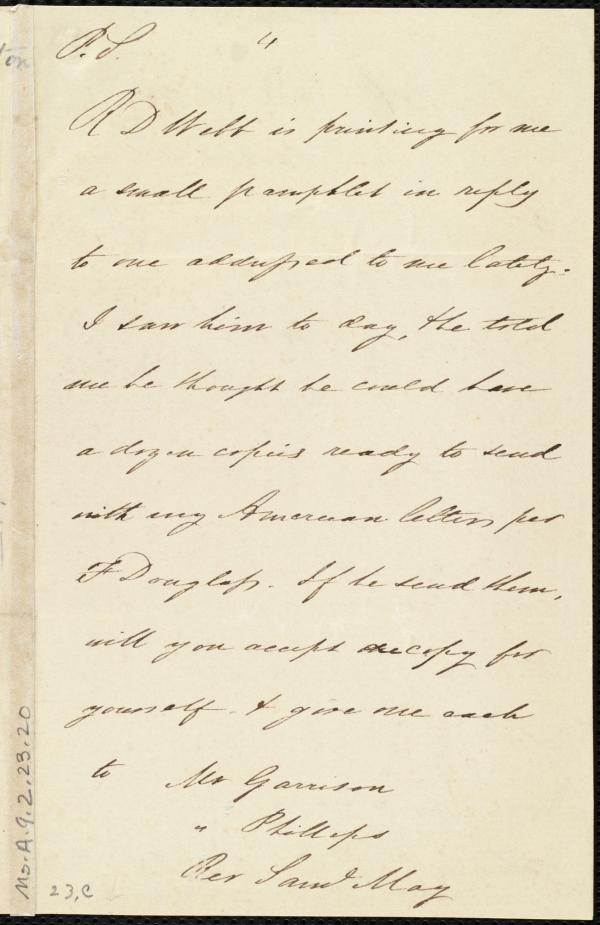 P.S. "
R D Webb is printing for me
a small pamphlet in reply
to one addressed to me lately.
I saw him to day, & he told
me he thought he could have
a dozen copies ready to send
with my American letters per
F Douglass. If he send them,
will you accept one copy for
yourself & give one each
to Mr Garrison
" Phillips
Rev Saml May
Ms.A.9.2.23.20
23, C